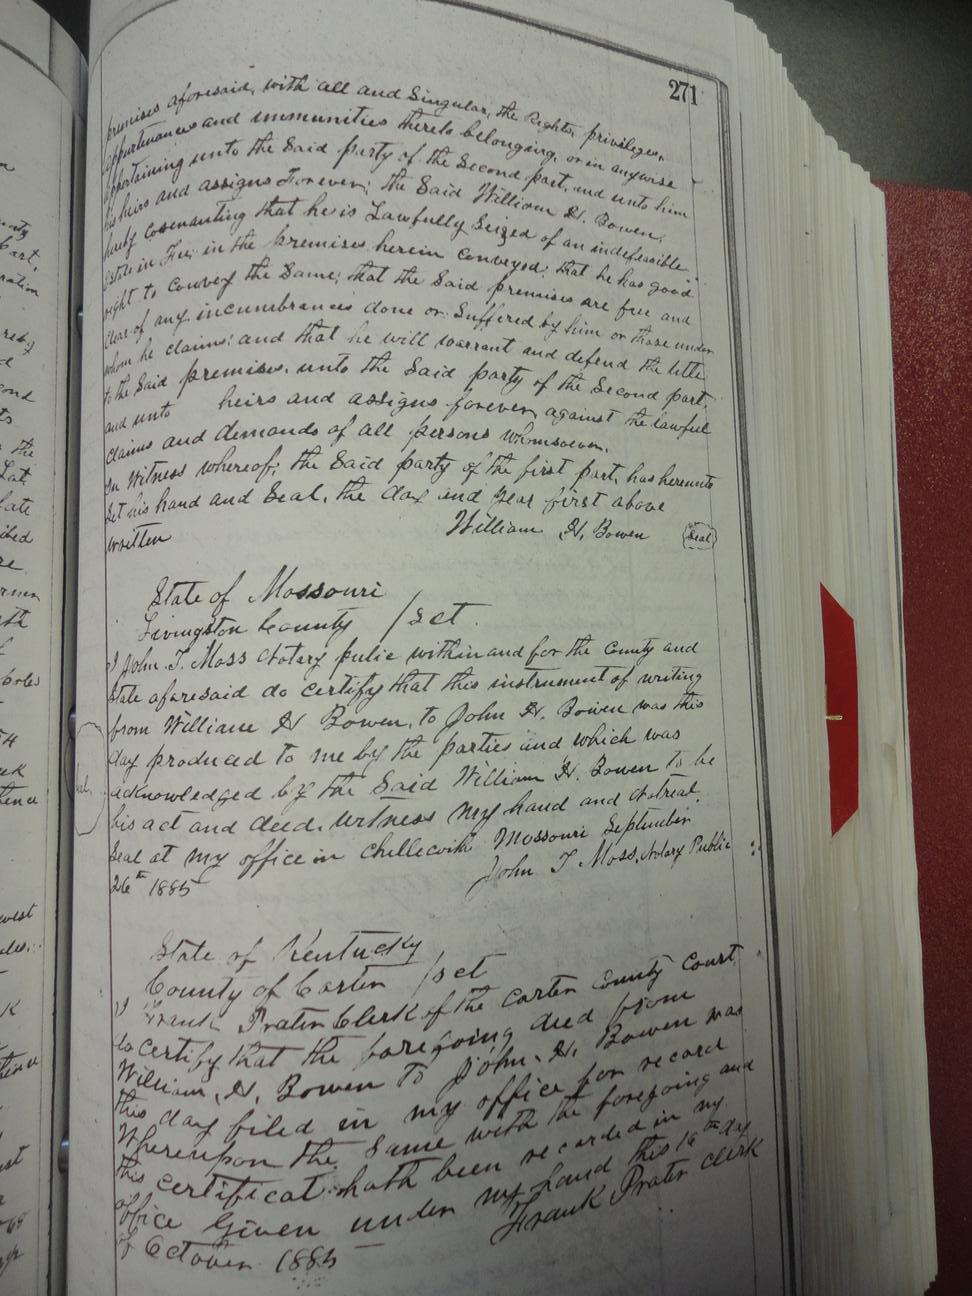 271
premises aforesaid, with all and Singular, the Rights, privileges,
appurtinances and immunities thereto belonging, or in anywise
appertaining unto the Said party of the Second part, and unto him
his heirs and assigns Forever; the Said William H. Bowen,
hereby covenanting that he is Lawfully Seized of an indefeasible
Estate in Fee; in the premises herein conveyed; that he has good
right to convey the Same; that the Said premises are free and
clear of any incumbrances done or Suffered by him or those under
whom he claims; and that he will warrant and defend the title
to the Said premises, unto the Said party of the Second part,
and unto heirs and assigns forever, against the lawful
claims and demands of all persons whomsoever.
In Witness whereof; the Said party of the first part, has hereunto
Set his hand and Seal, the day and year first above
written William H. Bowen Seal
State of Mossouri
Livingston County /Sct.
I John T. Moss Notary pulic within and for the County and
State aforesaid do certify that this instrument of writing
from William H Bowen, to John H. Bowen was this
day produced to me by the parties and which was
acknowledged by the Said William H. Bowen to be
his act and deed. Witness my hand and Notreal
Seal at my office in Chillecoth Mossouri September
26th 1885 John T Moss, Notary Public
State of Kentucky
County of Carter /Sct
I Frank Prater Clerk of the Carter County Court
do certify that the foregoing deed from
William, H. Bowen To John. H. Bowen was
this day filed in my office for record
Whereupon the Same with the foregoing and
this certificat hath been recorded in my
office Given under my hand this 19th day
of October 1885 Frank Prater Clerk